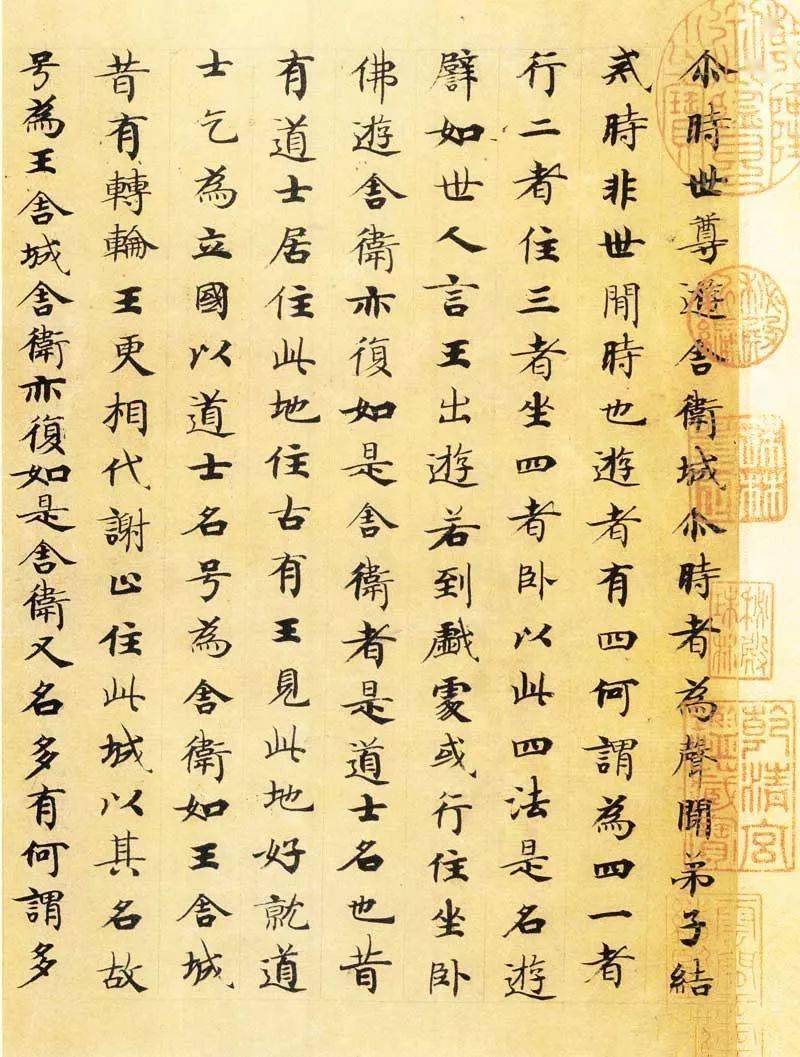 尒時世尊遊舍衛城尒時者為聲聞弟子結
戒時非世間時也遊者有四何謂為四一者
行二者住三者坐四者卧以此四法是名遊
譬如世人言王出遊若到戲處或行住坐卧
佛遊舍衛亦復如是舍衛者是道士名也昔
有道士居住此地住古有王見此地好就道
士乞為立國以道士名号為舍衛如王舍城
昔有轉輪王更相代謝止住此城以其名故
号為王舍城舍衛亦復如是舍衛又名多有何謂多
秘殿珠林
乾清宮鑒藏寶